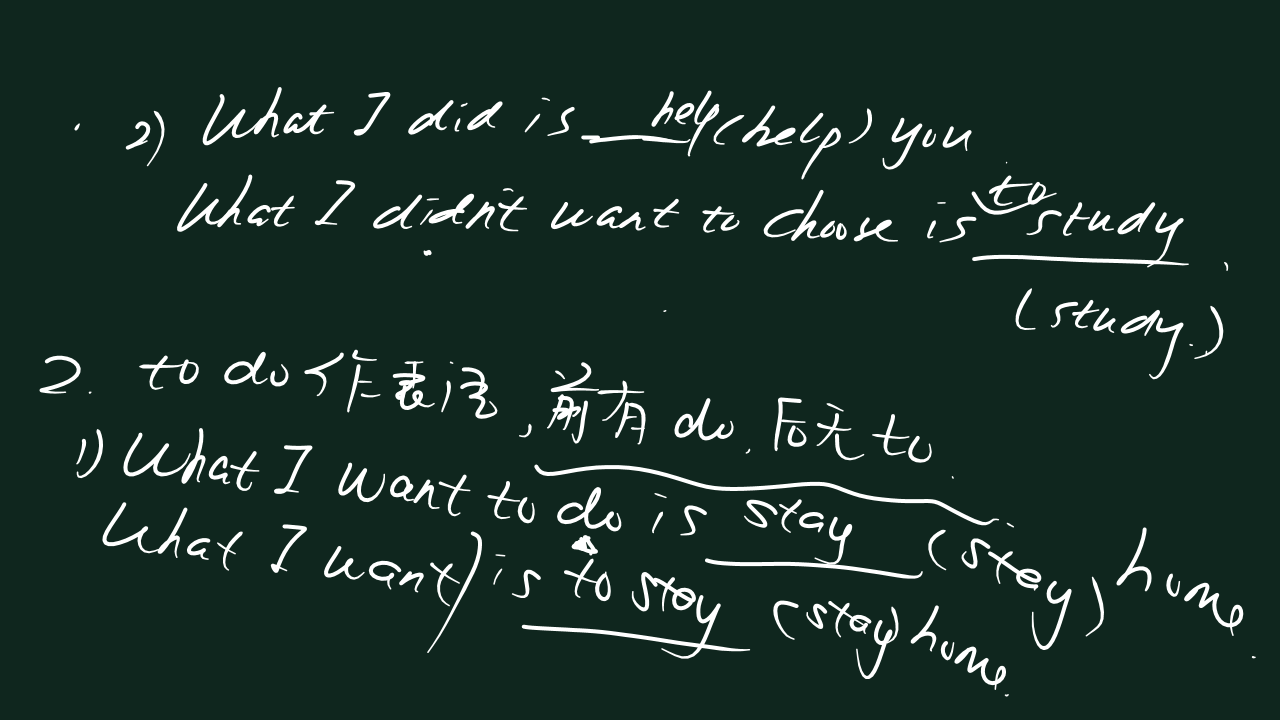 2) What I did is help (help) you
What I didn't want to choose is to study
(study)
2. to do 作表语,前有 do, 后无 to
1) What I want to do is stay (stay) home
What I want is to stay (stay) home.